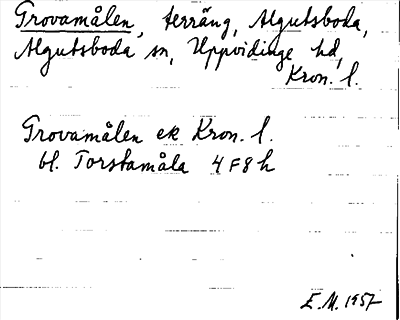 Trovamålen, terräng, Algutsboda,
Algutsboda sn, Uppvidinge hd,
Kron. l.
Trovamålen ek Kron. l.
bl. Torstamåla 4 F 8 h
E.M. 1957